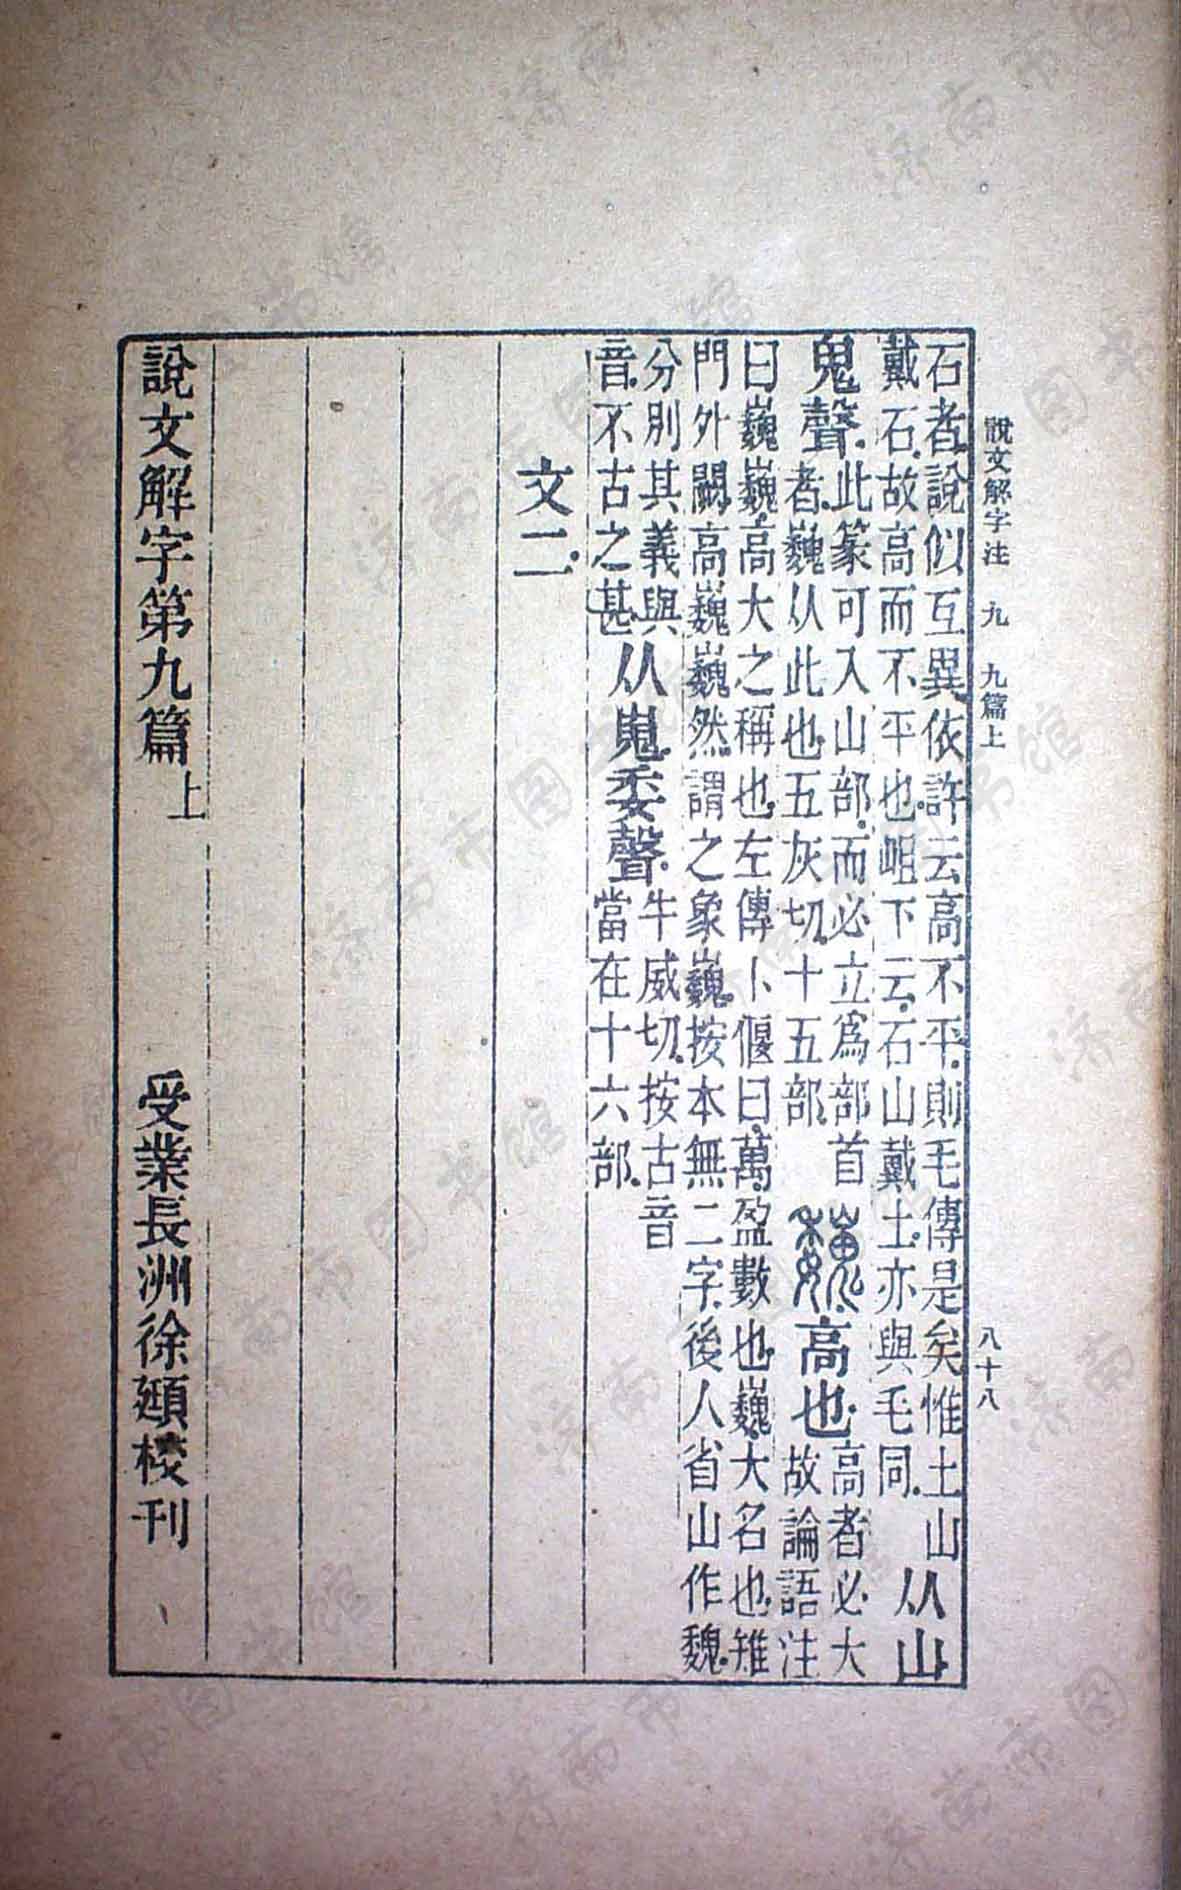 說文解字注 九 九篇上 八十八
石者說似互異依許云高不平.則毛傳是矣惟土山
戴石.故高而不平也.岨下云.石山戴土.亦與毛同.
从山
鬼聲.
此篆可入山部.而必立爲部首
者.巍从此也.五灰切.十五部.
巍 高也.
高者必大
故論語注
曰巍巍.高大之稱也.左傳卜偃曰.萬.盈數也.巍.大名也.雉
門外闕.高巍巍然.謂之象巍.按本無二字.後人省山作魏.
分別其義與
音.不古之甚.
从嵬.委聲.
牛威切.按古音
當在十六部.
文二.
說文解字第九篇上 受業長洲徐頲校刊
济南市图书馆